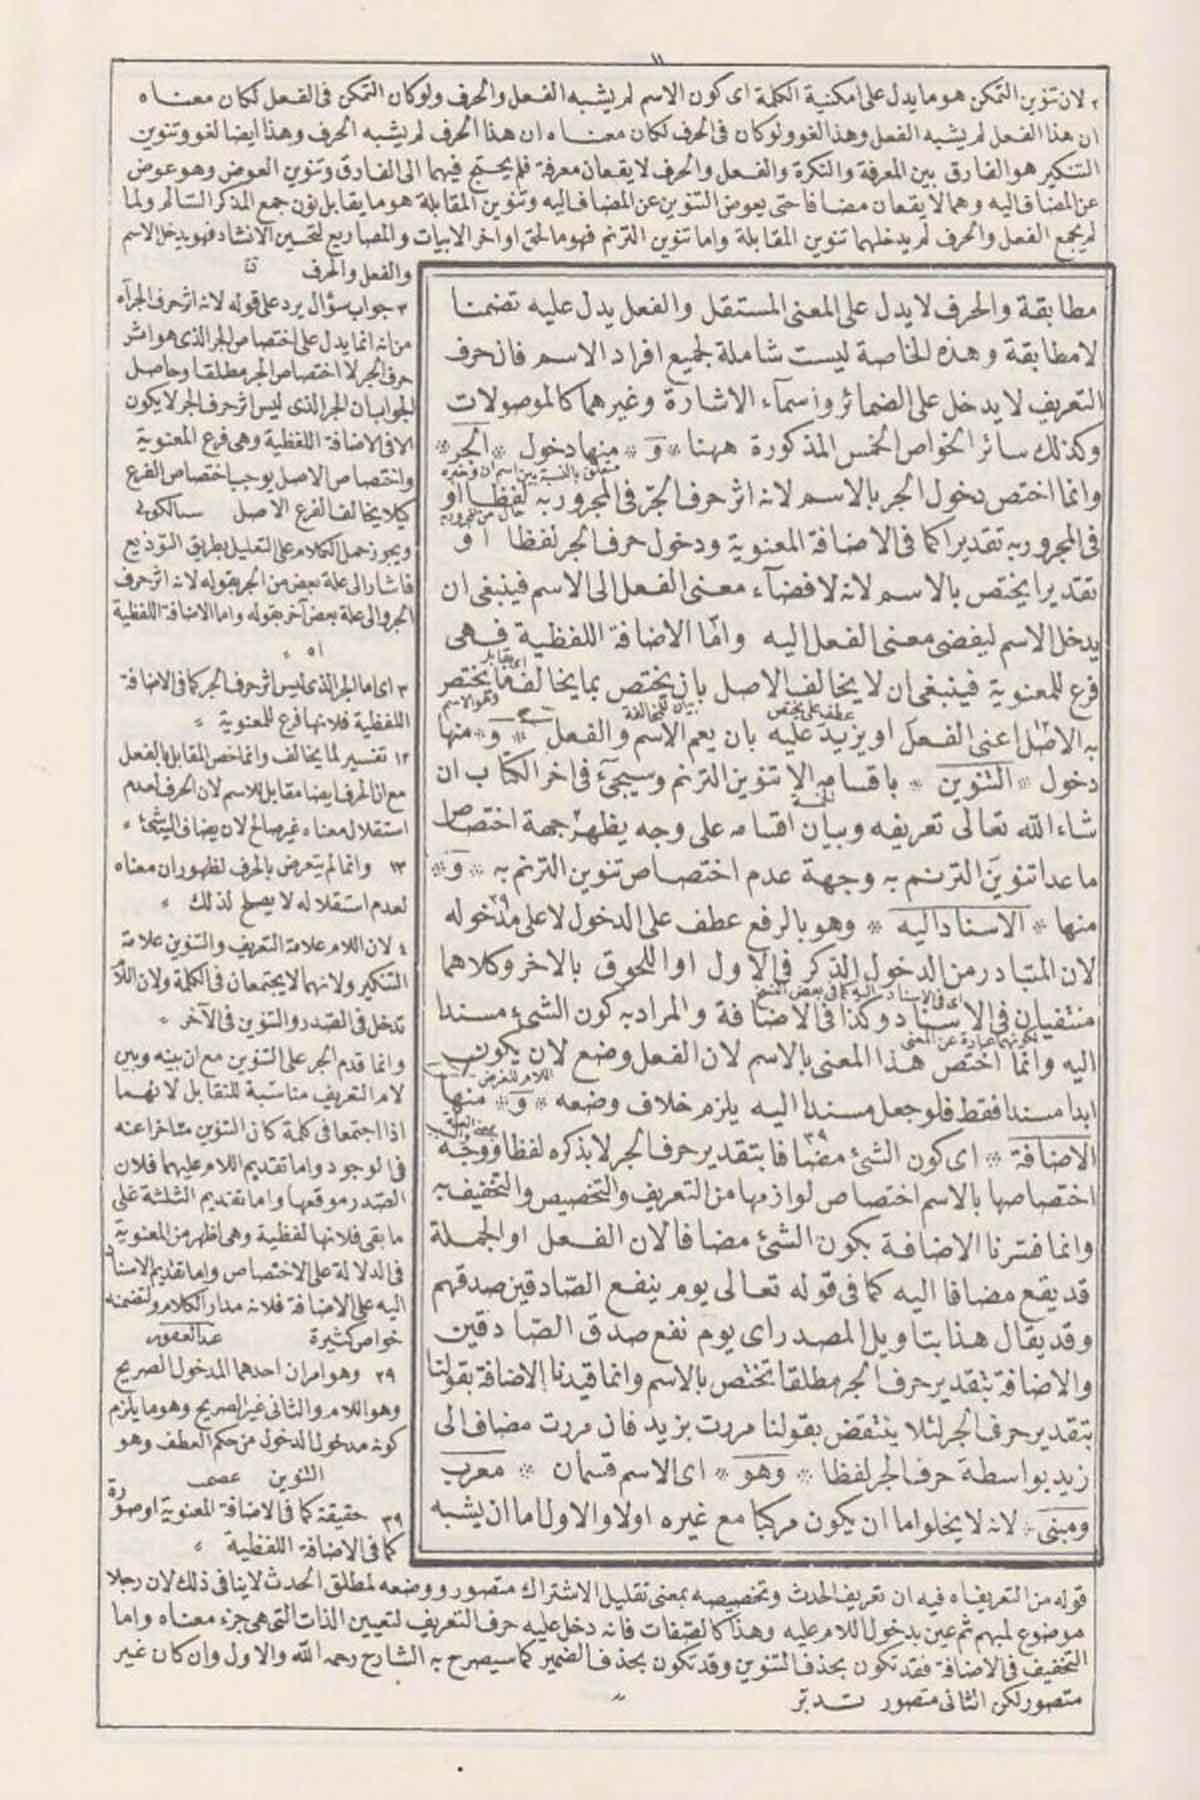 ١١
٢ لان تنوين التمكن هو ما يدل على امكنية الكلمة اى كون الاسم لم يشبه الفعل والحرف ولو كان التمكن فى الفعل لكان معناه
ان هذا الفعل لم يشبه الفعل وهذا لغو ولو كان فى الحرف لكان معناه ان هذا الحرف لم يشبه الحرف وهذا ايضا لغو وتنوين
التنكير هو الفارق بين المعرفة والنكرة والفعل والحرف لا يقعان معرفة فلم يحتج فيهما الى الفارق وتنوين العوض وهو عوض
عن المضاف اليه وهما لا يقعان مضافا حتى يعوض التنوين عن المضاف اليه وتنوين المقابلة هو ما يقابل نون جمع المذكر السالم ولما
لم يجمع الفعل والحرف لم يدخلهما تنوين المقابلة واما تنوين الترنم فهو ما لحق اواخر الابيات والمصاريع لتحسين الانشاد فهو يدخل الاسم
والفعل والحرف
مطابقة والحرف لا يدل على المعنى المستقل والفعل يدل عليه تضمنا
لا مطابقة وهذه الخاصة ليست شاملة لجميع افراد الاسم فان حرف
التعريف لا يدخل على الضمائر واسمآء الاشارة وغيرهما كالموصولات
وكذلك سائر الخواص الخمس المذكورة ههنا * و * منها دخول * الجر *
متعلق بالنسبة بين اسم ان وخبره
وانما اختص دخول الجر بالاسم لانه اثر حرف الجرّ فى المجرور به لفظا او
حال من المجرور به
فى المجرور به تقديرا كما فى الاضافة المعنوية ودخول حرف الجر لفظا او
تقديرا يختص بالاسم لانه لافضآء معنى الفعل الى الاسم فينبغى ان
يدخل الاسم ليفضى معنى الفعل اليه واما الاضافة اللفظية فهى
فرع للمعنوية فينبغى ان لا يخالف الاصل بان يختص بما يخالف ما يختص
عطف على يختص بيان للمخالفة وهو الاسم
به الاصل اعنى الفعل او يزيد عليه بان يعم الاسم والفعل * و * منها
دخول * التنوين * باقسامه الا تنوين الترنم وسيجئ فى اخر الكتاب ان
شاء الله تعالى تعريفه وبيان اقسامه على وجه يظهر جهة اختصاص
ما عدا تنوين الترنم به وجهة عدم اختصاص تنوين الترنم به * و *
منها * الاسناد اليه * وهو بالرفع عطف على الدخول لا على مدخوله
لان المتبادر من الدخول الذكر فى الاول او اللحوق بالاخر وكلاهما
اى فى الاسناد اليه كما فى بعض النسخ
منتفيان فى الاسناد وكذا فى الاضافة والمراد به كون الشئ مسندا
لكونهما عبارة عن المعنى
اليه وانما اختص هذا المعنى بالاسم لان الفعل وضع لان يكون
اللام للغرض
ابدا مسندا فقط فلو جعل مسندا اليه يلزم خلاف وضعه * و * منها
الاضافة * اى كون الشئ مضافا بتقدير حرف الجر لا بذكره لفظا ووجه
اختصاصها بالاسم اختصاص لوازمها من التعريف والتخصيص والتخفيف به
وانما فسرنا الاضافة بكون الشئ مضافا لان الفعل او الجملة
قد يقع مضافا اليه كما فى قوله تعالى يوم ينفع الصّادقين صدقهم
وقد يقال هذا بتاويل المصدر اى يوم نفع صدق الصّادقين
والاضافة بتقدير حرف الجر مطلقا تختص بالاسم وانما قيدنا الاضافة بقولنا
بتقدير حرف الجر لئلا ينتقض بقولنا مررت بزيد فان مررت مضاف الى
زيد بواسطة حرف الجر لفظا * وهو * اى الاسم قسمان * معرب
ومبنى * لانه لا يخلو اما ان يكون مركبا مع غيره اولا والاول اما ان يشبه
٣ جواب سؤال يرد على قوله لانه اثر حرف الجر اه
من انه انما يدل على اختصاص الجر الذى هو اثر
حرف الجر لا اختصاص الجر مطلقا وحاصل
الجواب ان الجر الذى ليس اثر حرف الجر لا يكون
الا فى الاضافة اللفظية وهى فرع المعنوية
واختصاص الاصل يوجب اختصاص الفرع
كيلا يخالف الفرع الاصل سيالكوتى
ويجوز حمل الكلام على التعليل بطريق التوزيع
فاشار الى علة بعض من الجر بقوله لانه اثر حرف
الجر والى علة بعض آخر بقوله واما الاضافة اللفظية
اه
٣ اى اما الجر الذى ليس اثر حرف الجر كما فى الاضافة
اللفظية فلانها فرع للمعنوية
١٢ تفسير لما يخالف وانما خص المقابل بالفعل
مع ان الحرف ايضا مقابل للاسم لان الحرف لعدم
استقلال معناه غير صالح لان يضاف اليه شئ
١٣ وانما لم يتعرض بالحرف لظهور ان معناه
لعدم استقلاله لا يصلح لذلك
٤ لان اللام علامة التعريف والتنوين علامة
التنكير ولانهما لا يجتمعان فى الكلمة ولان اللام
تدخل فى الصدر والتنوين فى الآخر
وانما قدم الجر على التنوين مع ان بينه وبين
لام التعريف مناسبة للتقابل لانهما
اذا اجتمعا فى كلمة كان التنوين متاخرا عنه
فى الوجود واما تقديم اللام عليهما فلان
الصدر موقعها واما تقديم الثلثة على
ما بقى فلانها لفظية وهى اظهر من المعنوية
فى الدلالة على الاختصاص واما تقديم الاسناد
اليه على الاضافة فلانه مدار الكلام ولتضمنه
خواص كثيرة عبد الغفور
٢٩ وهو امران احدهما المدخول الصريح
وهو اللام والثانى غير الصريح وهو ما يلزم
كونه مدخولا لدخول من حكم العطف وهو
التنوين عصمت
٣٩ حقيقة كما فى الاضافة المعنوية او صورة
كما فى الاضافة اللفظية
قوله من التعريف اه فيه ان تعريف الحدث وتخصيصه بمعنى تقليل الاشتراك متصور ووضعه لمطلق الحدث لا ينافى ذلك لان رجلا
موضوع لمبهم ثم عين بدخول اللام عليه وهذا كالصفات فانه دخل عليه حرف التعريف لتعيين الذات التى هى جزء معناه واما
التخفيف فى الاضافة فقد تكون بحذف التنوين وقد تكون بحذف الضمير كما سيصرح به الشارح رحمه الله والاول وان كان غير
متصور لكن الثانى متصور تدبر